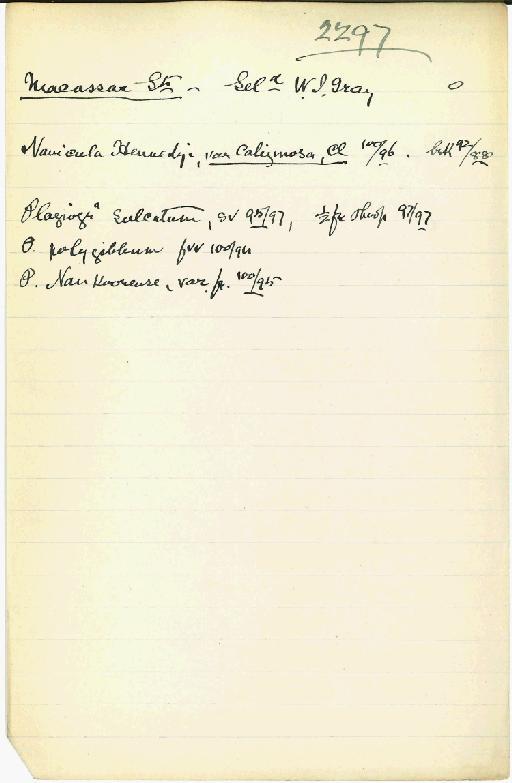 2297
Macassar Str - Sel^d W.I. Gray
Navicula Hennedyi, var caliginosa, Cl 100/96. 92/88
Plagiog^a sulcatum, SV 93/97, ½ fr 97/97
P. polygibbum 100/94
P. Nankoorense, var. fr. 100/95